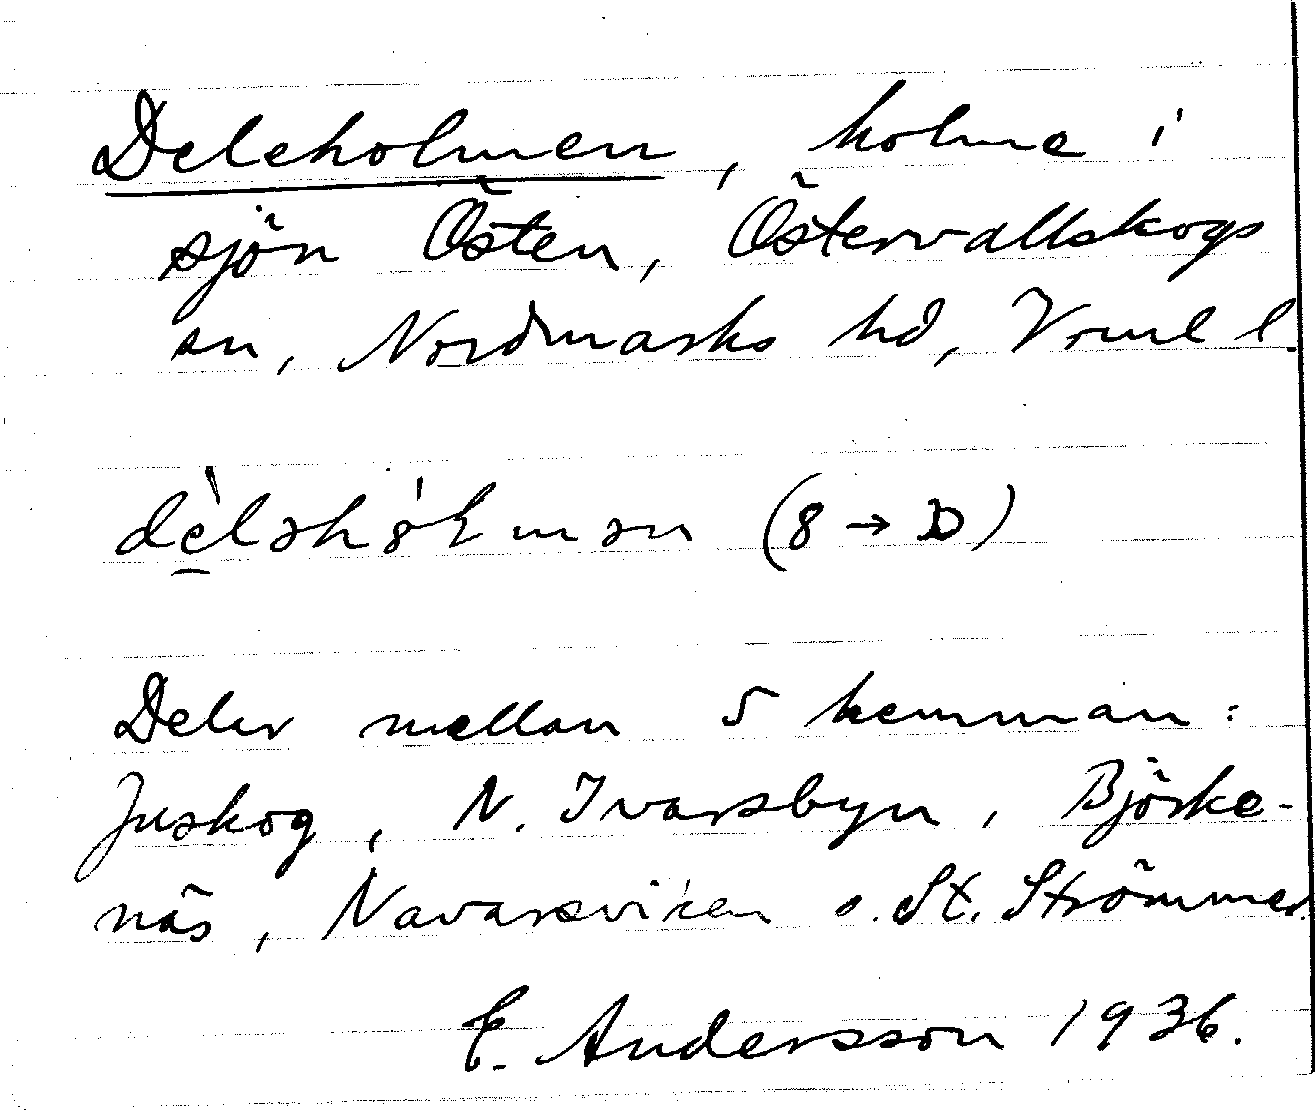 Deleholmen, holme i
sjön Östen, Östervallskogs
sn, Nordmarks hd, Vrml l.
(8 → D)
Deler mellan 5 hemman:
Juskog, N. Ivarsbyn, Björke-
näs, Navarsviken o. St. Strömmer.
E. Andersson 1936.